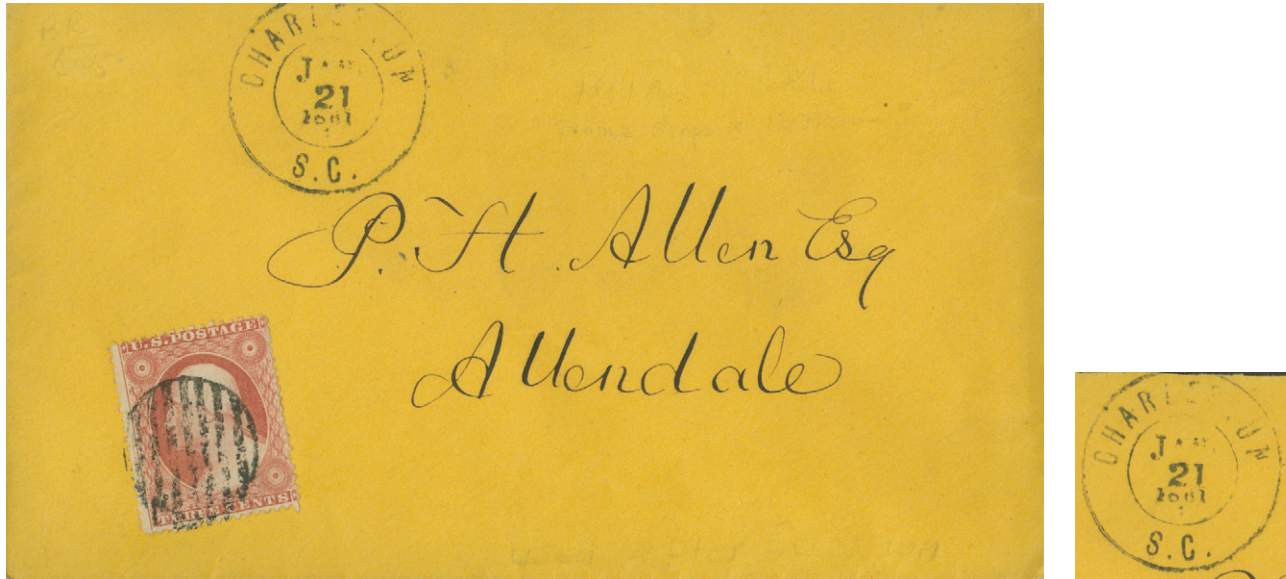 CHARLESTON
JAN
21
S.C.
P. H. Allen Esq
Allendale
U.S. POSTAGE
THREE CENTS
CHARLESTON
JAN
21
S.C.